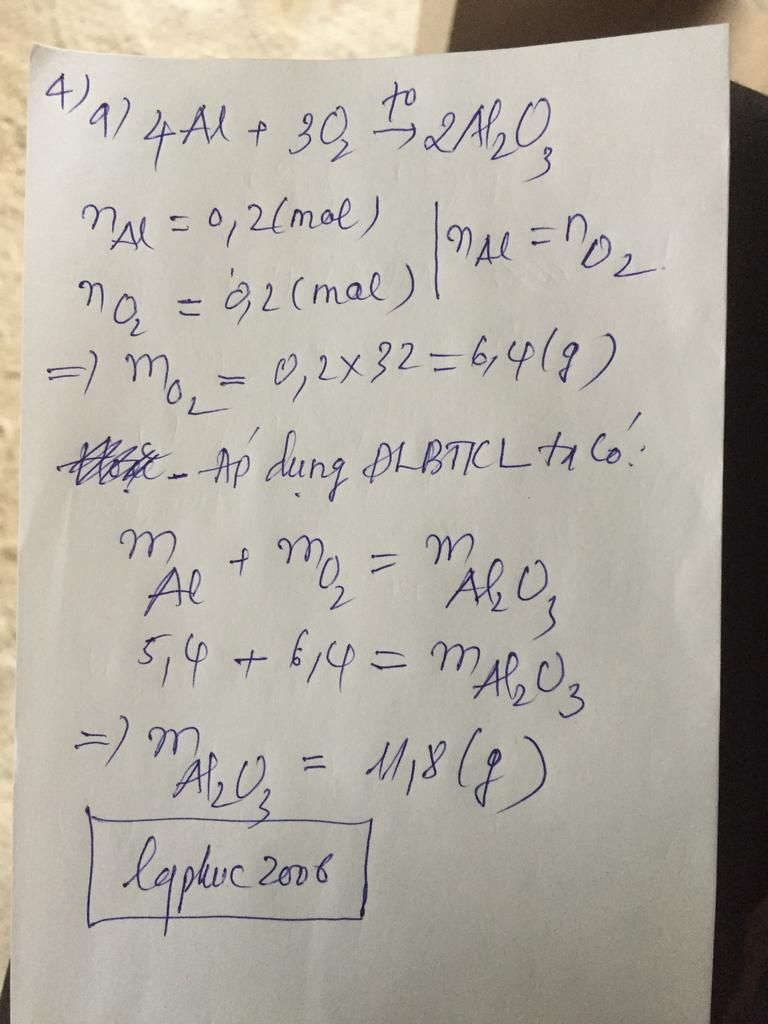 4) a) 4Al + 3O₂ →t° 2Al₂O₃
n Al = 0,2 (mol) | n Al = n O₂
n O₂ = 0,2 (mol)
=> m O₂ = 0,2 x 32 = 6,4 (g)
- Áp dụng ĐLBTKL ta có:
m Al + m O₂ = m Al₂O₃
5,4 + 6,4 = m Al₂O₃
=> m Al₂O₃ = 11,8 (g)
lqphuc2006